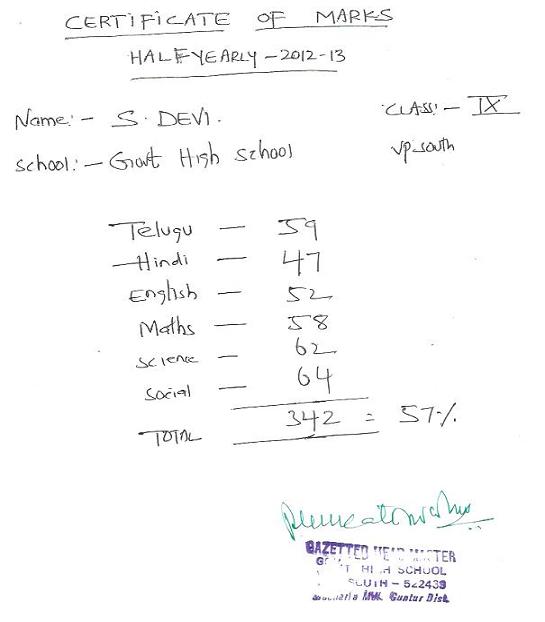 CERTIFICATE OF MARKS
HALFYEARLY - 2012-13
Name:- S. DEVI. CLASS:- IX
School:- Govt High School VP-South
Telugu - 59
Hindi - 47
English - 52
Maths - 58
Science - 62
Social - 64
TOTAL 342 = 57%
GAZETTED HEAD MASTER
HIGH SCHOOL
SOUTH - 522439
Guntur Dist.